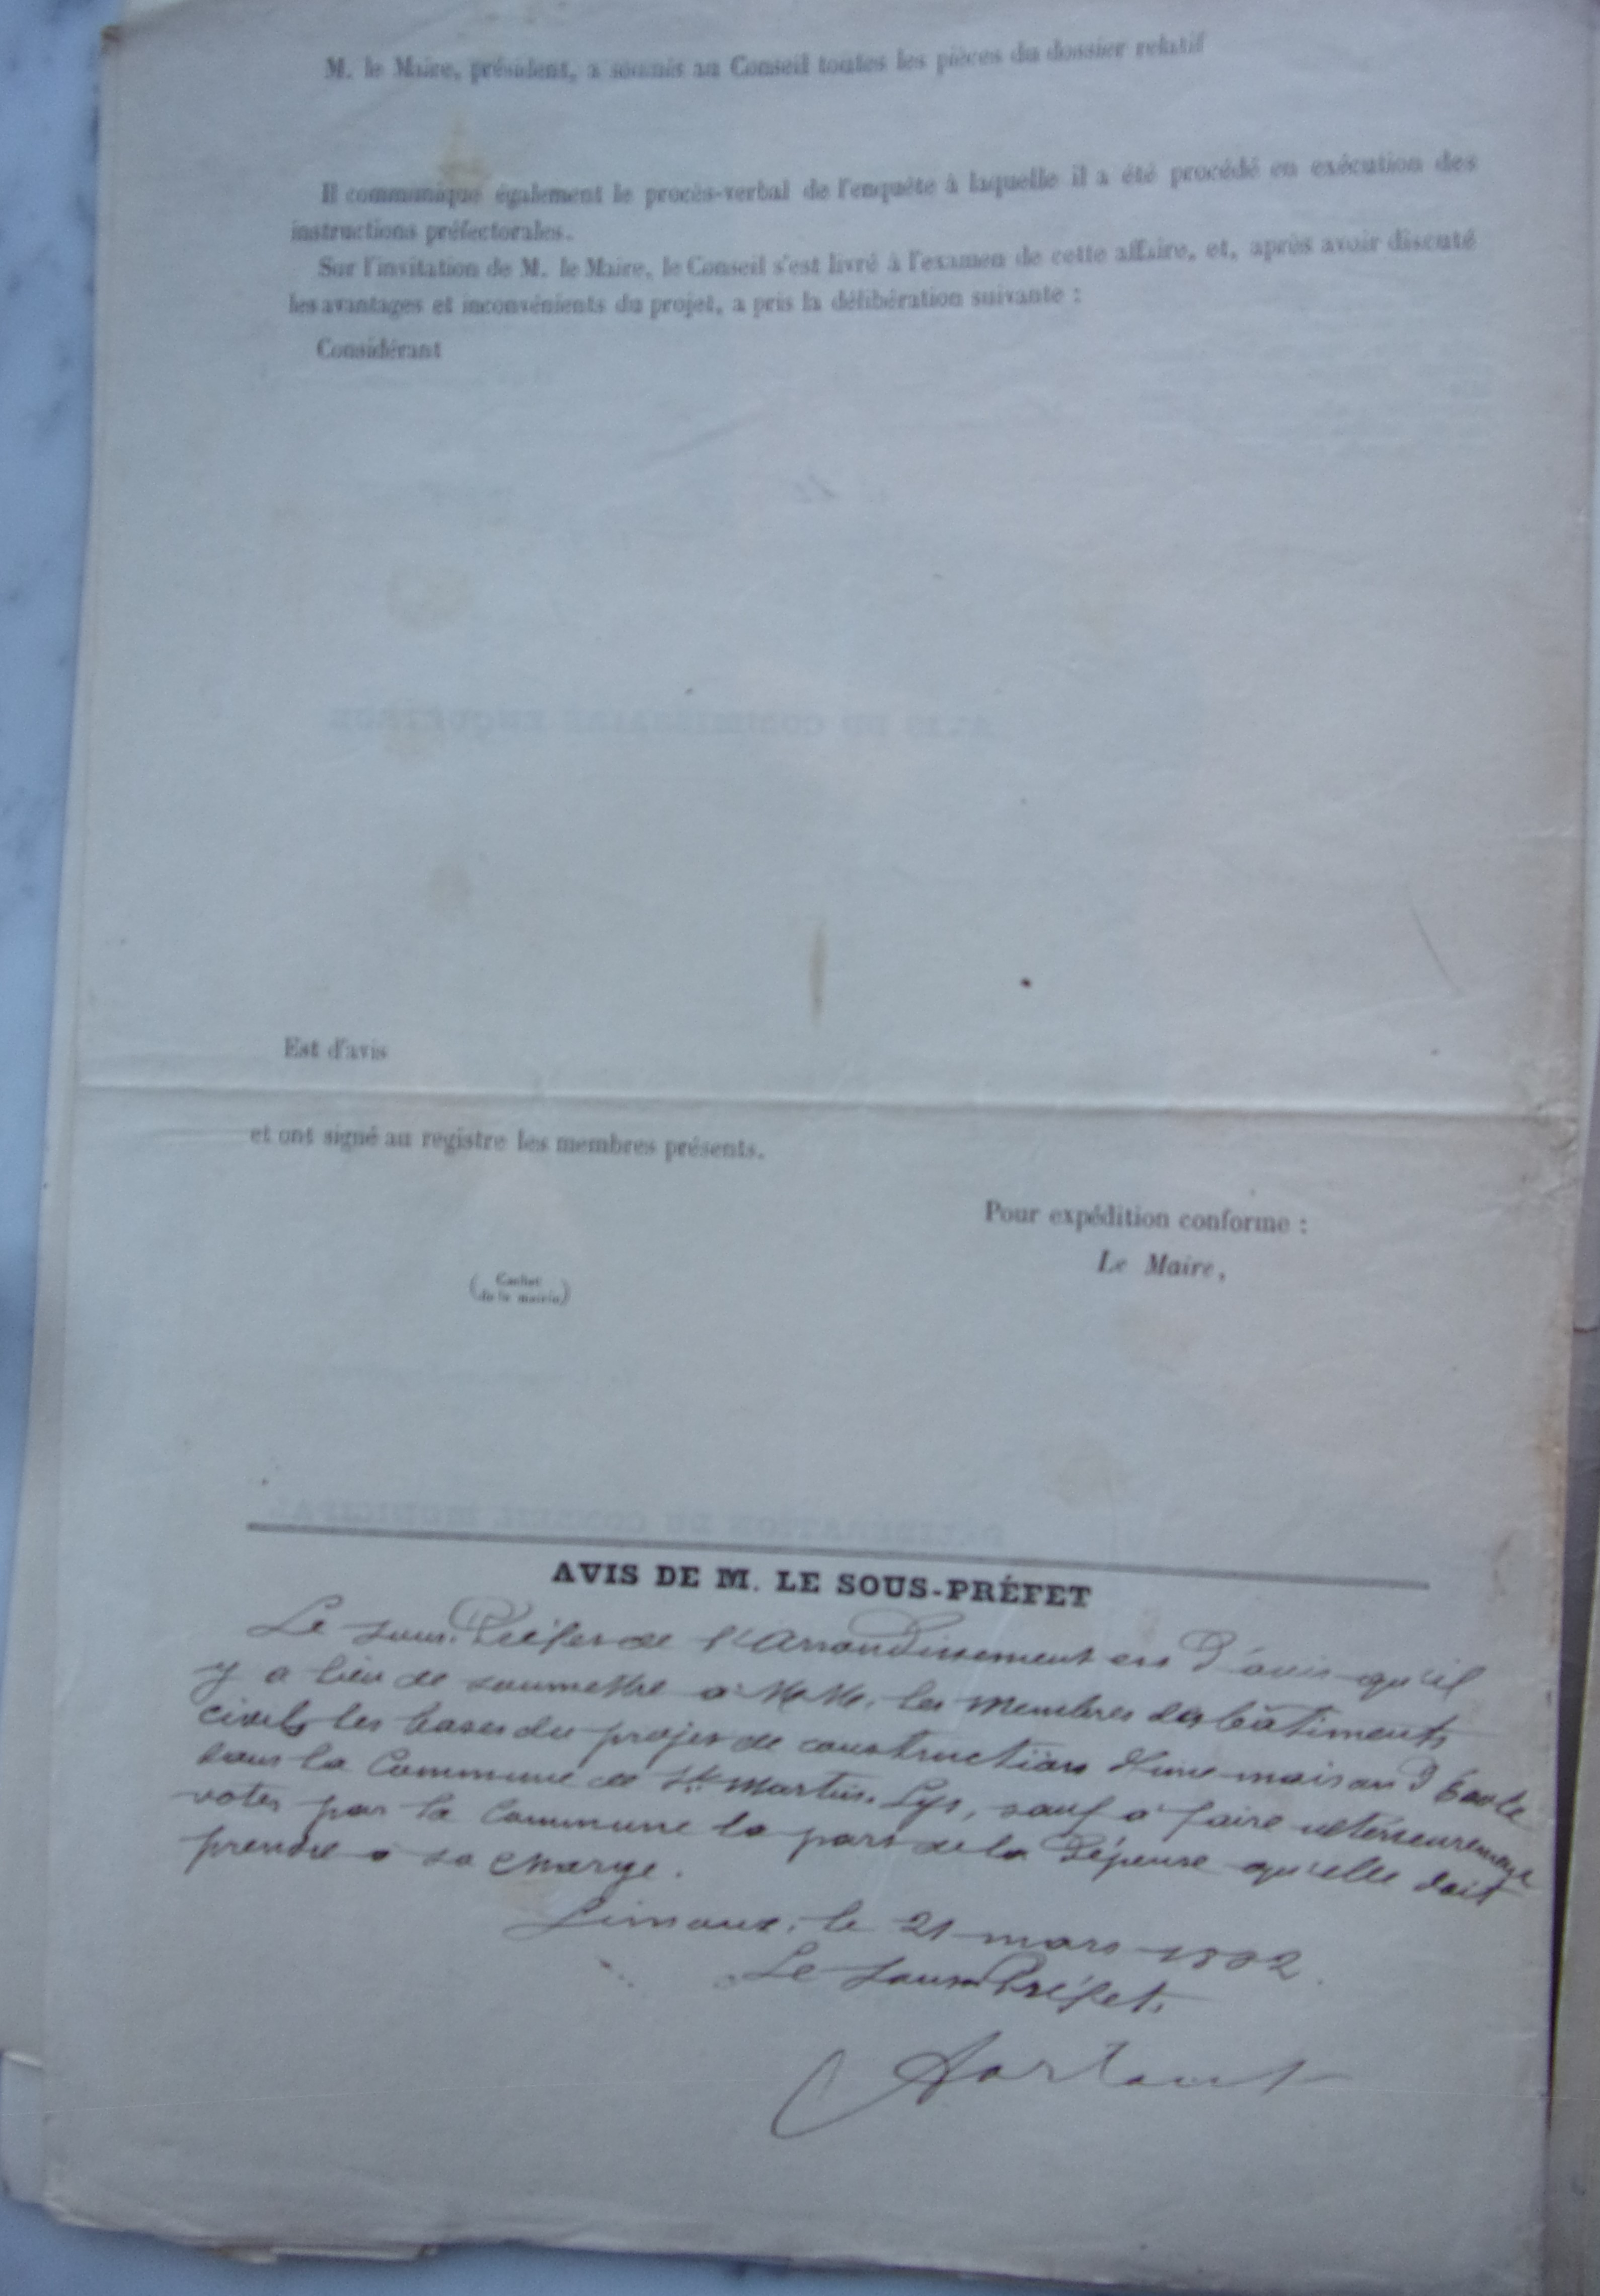 M. le Maire, président, a soumis au Conseil toutes les pièces du dossier relatif
Il communique également le procès-verbal de l'enquête à laquelle il a été procédé en exécution des
instructions préfectorales.
Sur l'invitation de M. le Maire, le Conseil s'est livré à l'examen de cette affaire, et, après avoir discuté
les avantages et inconvénients du projet, a pris la délibération suivante :
Considérant
Est d'avis
et ont signé au registre les membres présents.
Pour expédition conforme :
Le Maire,
(Cachet
de la mairie)
AVIS DE M. LE SOUS-PRÉFET
Le Sous-Préfet de l'Arrondissement est d'avis qu'il
y a lieu de soumettre à M.M. les Membres des bâtiments
civils les bases du projet de construction d'une maison d'école
dans la Commune de St Martin-Lys, sauf à faire ultérieurement
voter par la Commune la part de la dépense qu'elle doit
prendre à sa charge.
Limoux, le 21 mars 1882.
Le Sous-Préfet,